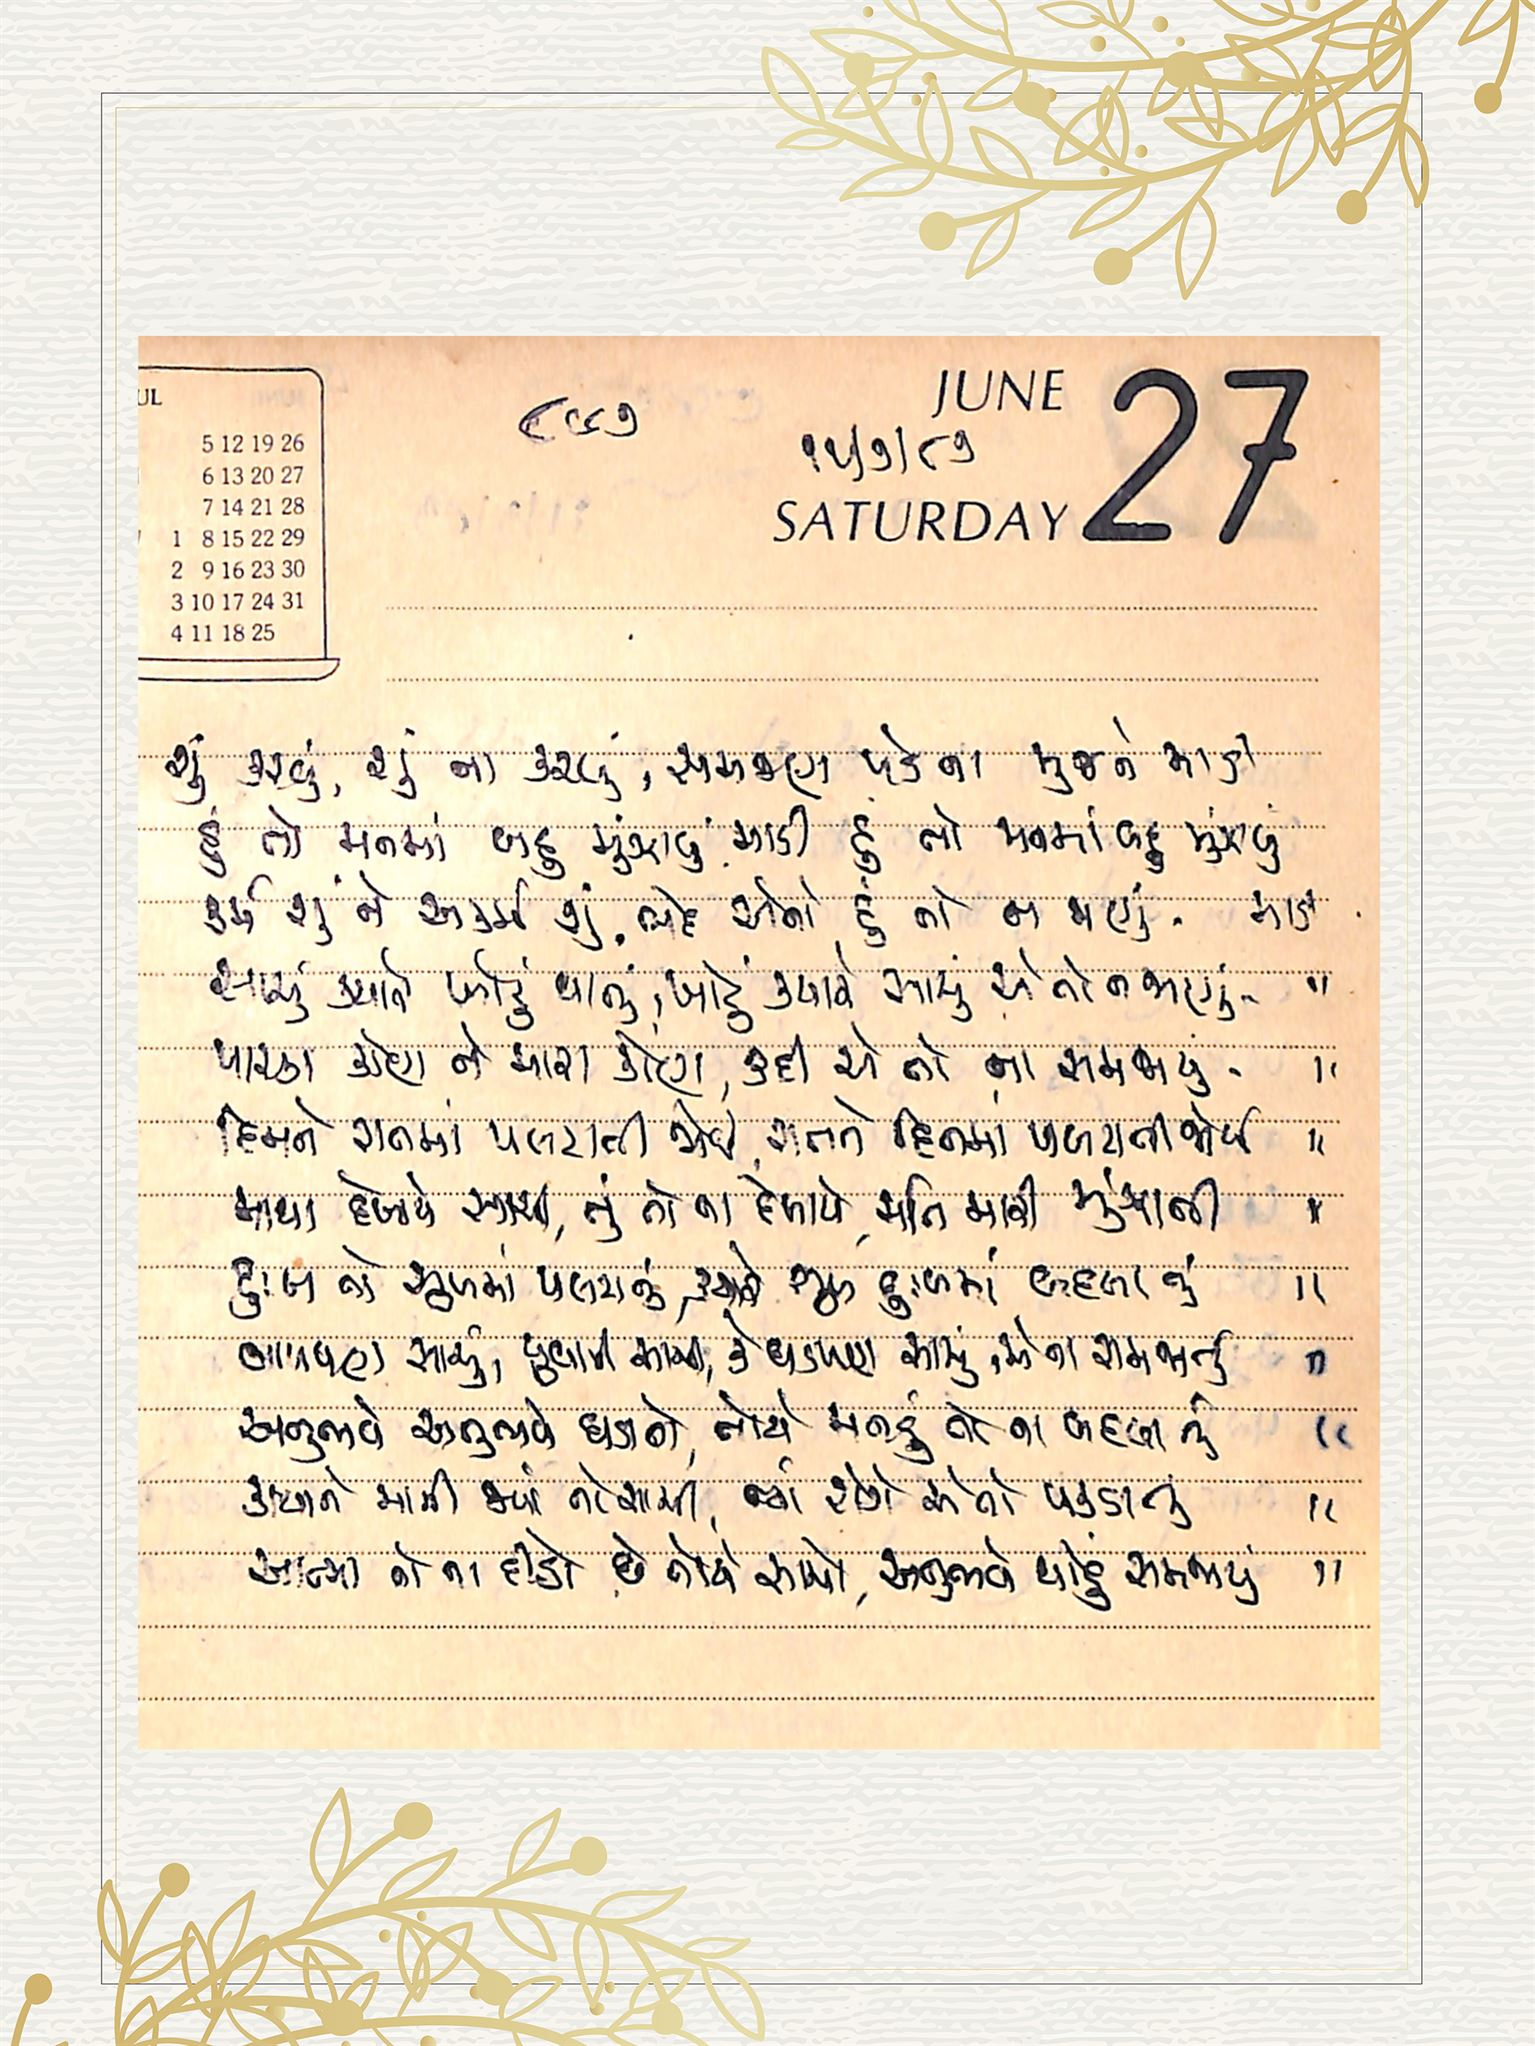 UL
5 12 19 26
6 13 20 27
7 14 21 28
1 8 15 22 29
2 9 16 23 30
3 10 17 24 31
4 11 18 25
JUNE 27
૧૫/૭/૮૭
SATURDAY
શું કરવું, શું ના કરવું, સમજણ પડે ના મુજને માડી
હું તો મનમાં બહુ મુંઝાવું માડી હું તો મનમાં બહુ મુંઝાવું
કર્મ શું ને અકર્મ શું, ભેદ એનો હું તો ન જાણું - માડી
સાચું ક્યારે ખોટું થાતું, ખોટું ક્યારે સાચું એ તો ન જાણું - "
પારકા કોણ ને મારા કોણ, કદી એ તો ના સમજાયું - "
દિનને રાતમાં પલટાતી જોઈ, રાતને દિનમાં પલટાતી જોઈ "
માયા દેખાયે સાચી, તું તો ના દેખાયે, મતિ મારી મુંઝાતી "
દુઃખ તો સુખમાં પલટાતું, ક્યારે સુખ દુઃખમાં બદલાતું "
બાળપણ સાચું, યુવાની સાચી, કે ઘડપણ સાચું, એ ના સમજાતું "
અનુભવે અનુભવે ઘડાતો, તોયે મનડું તો ના બદલાતું "
ક્યાંને માની જ્યાં તો સાચી, ત્યાં રસ્તો એનો પકડાતું "
આત્મા તો ના દીઠો છે તોયે સાચો, અનુભવે થોડું સમજાયું "